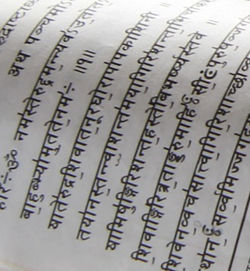 अथ पञ्चमोऽ
हरिः ॐ नमस्ते रुद्र मन्यवऽउतोत
बाहुभ्यामुत ते नमः ॥१॥
या ते रुद्र शिवा तनूरघोरापापकाशिनी ।
तया नस्तन्वा शन्तमया गिरिशन्ताभि
यामिषुं गिरिशन्त हस्ते बिभर्ष्यस्तवे ।
शिवां गिरित्र तां कुरु मा हिꣳसीः पुरुषं
शिवेन वचसा त्वा गिरिशा
सर्वमिज्जग